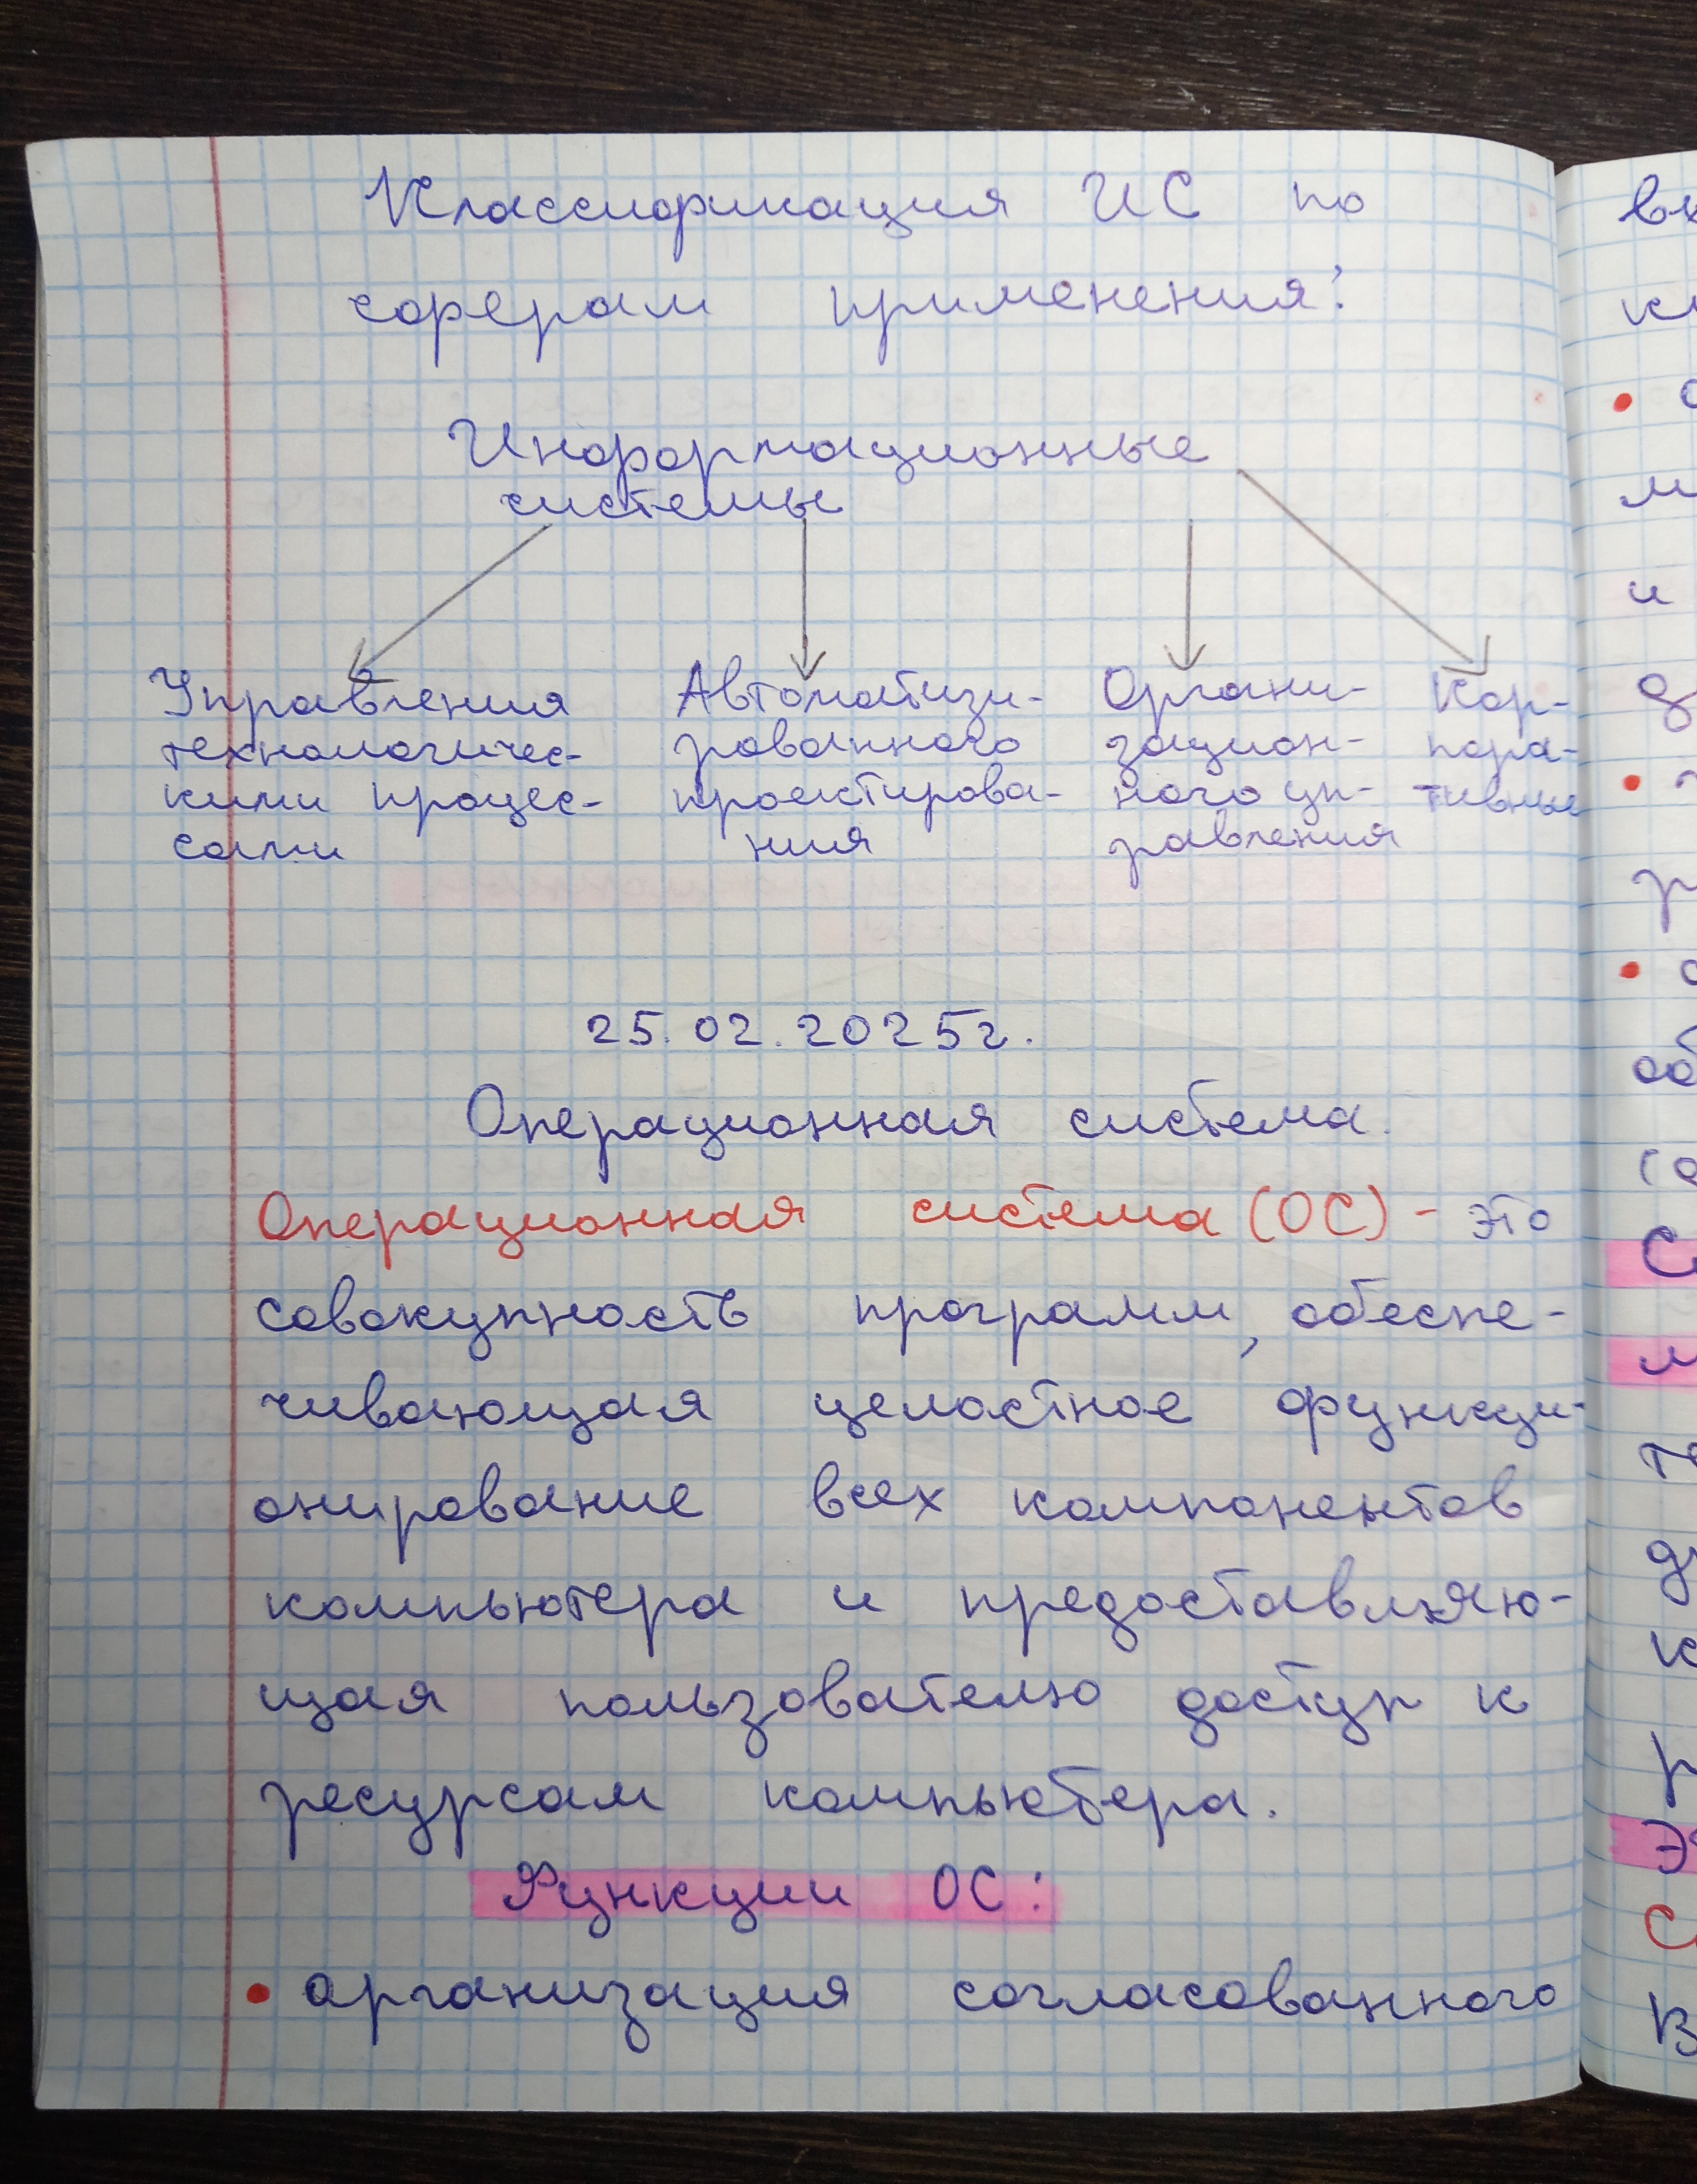 Классификация ИС по
сферам применения:
Информационные
системы
Управления
технологичес-
кими процес-
сами
Автоматизи-
рованного
проектирова-
ния
Органи-
зацион-
ного уп-
равления
Кор-
пора-
тивные
25.02.2025г.
Операционная система.
Операционная система (ОС) - это
совокупность программ, обеспе-
чивающая целостное функци-
онирование всех компонентов
компьютера и предоставляю-
щая пользователю доступ к
ресурсам компьютера.
Функции ОС:
• организация согласованного